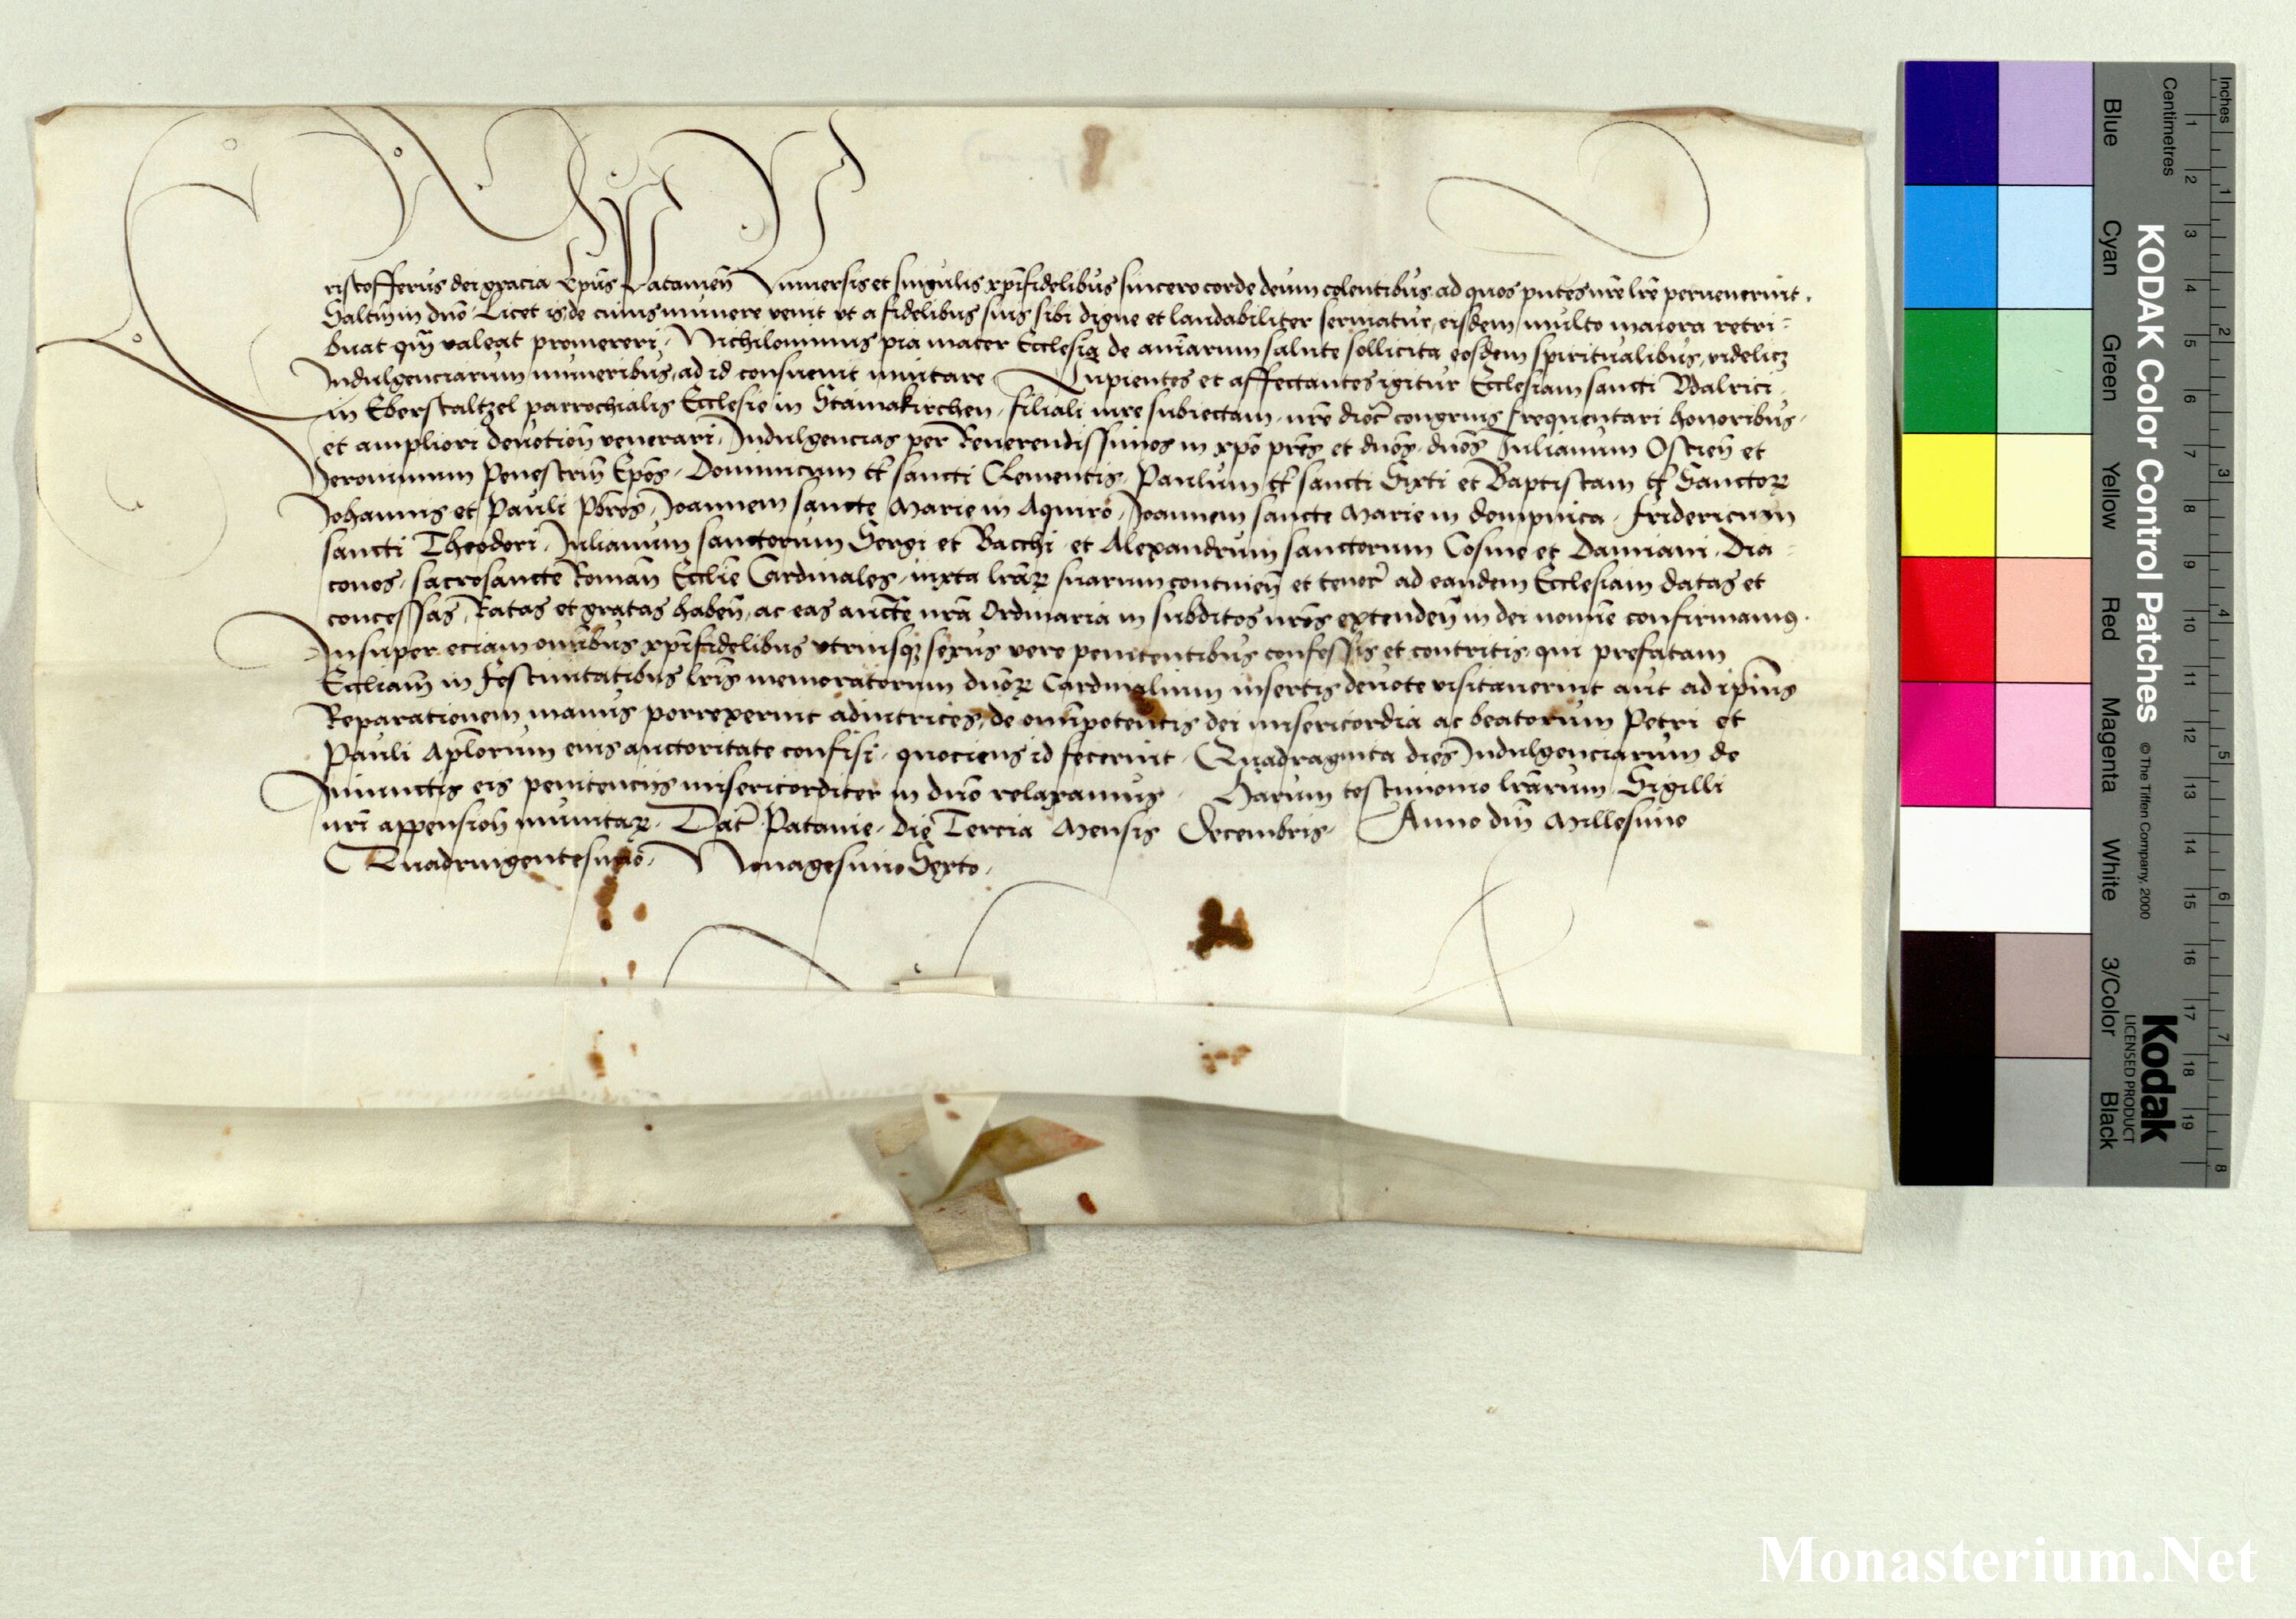 Cristofferus dei gracia Ep̄us Patauien̄ Vniuersis et singulis xp̄ifidelibus sincero corde deum colentibus ad quos pn̄tes nr̄e lr̄e peruenerint.
Salt̄m in dn̄o. Licet is de cuius munere venit vt a fidelibus suis sibi digne et laudabiliter seruiatur, eisdem multo maiora retri-
buat qm̄ valeat promereri. Nichilominus pia mater Ecclesia de aīarum salute sollicita eosdem spiritualibus, videlicꝫ
Indulgenciarum muneribus, ad id consueuit inuitare. Cupientes et affectantes igitur Ecclesiam sancti Vdalrici
in Eberstaltzel parrochialis Ecclesie in Stainakirchen, filiali iure subiectam, nr̄e dioc̄ congruis frequentari honoribus,
et ampliori deuotion̄ venerari, Indulgencias per Reuerendissimos in xp̄o pr̄es et dn̄os, dn̄os Iulianum Ostien̄ et
Ieronimum Penestrin̄ Ep̄os, Dominicum tt̄ sancti Clementis, Paulum tt̄ sancti Sixti et Baptistam tt̄ Sanctoꝝ
Iohannis et Pauli Pb̄ros, Ioannem sancte Marie in Aquiro, Ioannem sancte Marie in dompnica, fridericum
sancti Theodori, Iulianum sanctorum Sergi et Bacchi, et Alexandrum sanctorum Cosme et Damiani, Dia-
conos, sacrosancte Roman̄ Eccl̄ie Cardinales, iuxta lr̄aꝝ suarum continen̄ et tenor̄ ad eandem Ecclesiam datas et
concessas, Ratas et gratas haben̄, ac eas auct̄e nr̄a Ordinaria in subditos nr̄os extenden̄ in dei nomīe confirmamꝰ.
Insuper eciam om̄ibus xp̄ifidelibus vtriusqꝫ sexus vere penitentibus confessis et contritis, qui prefatam
Eccl̄iam in festiuitatibus lr̄is memoratorum dn̄oꝝ Cardinalium insertis deuote visitauerint aut ad ip̄ius
Reparationem manus porrexerint adiutrices, de om̄ipotentis dei misericordia ac beatorum Petri et
Pauli Ap̄lorum eius auctoritate confisi, quociens id fecerint, Quadraginta dies Indulgenciarum de
Iniunctis eis penitencijs misericorditer in dn̄o relaxamus. Harum testimonio lr̄arum Sigilli
nr̄i appension̄ munitaꝝ. Dat̄ Patauie, die Tercia Mensis Decembris, Anno dn̄i Millesimo
Quadringentesimo, Nonagesimo Sexto.
KODAK Color Control Patches © The Tiffen Company, 2000
Kodak
LICENSED PRODUCT
Blue Cyan Green Yellow Red Magenta White 3/Color Black
Inches 1 2 3 4 5 6 7 8
Centimetres 1 2 3 4 5 6 7 8 9 10 11 12 13 14 15 16 17 18 19
Monasterium.Net